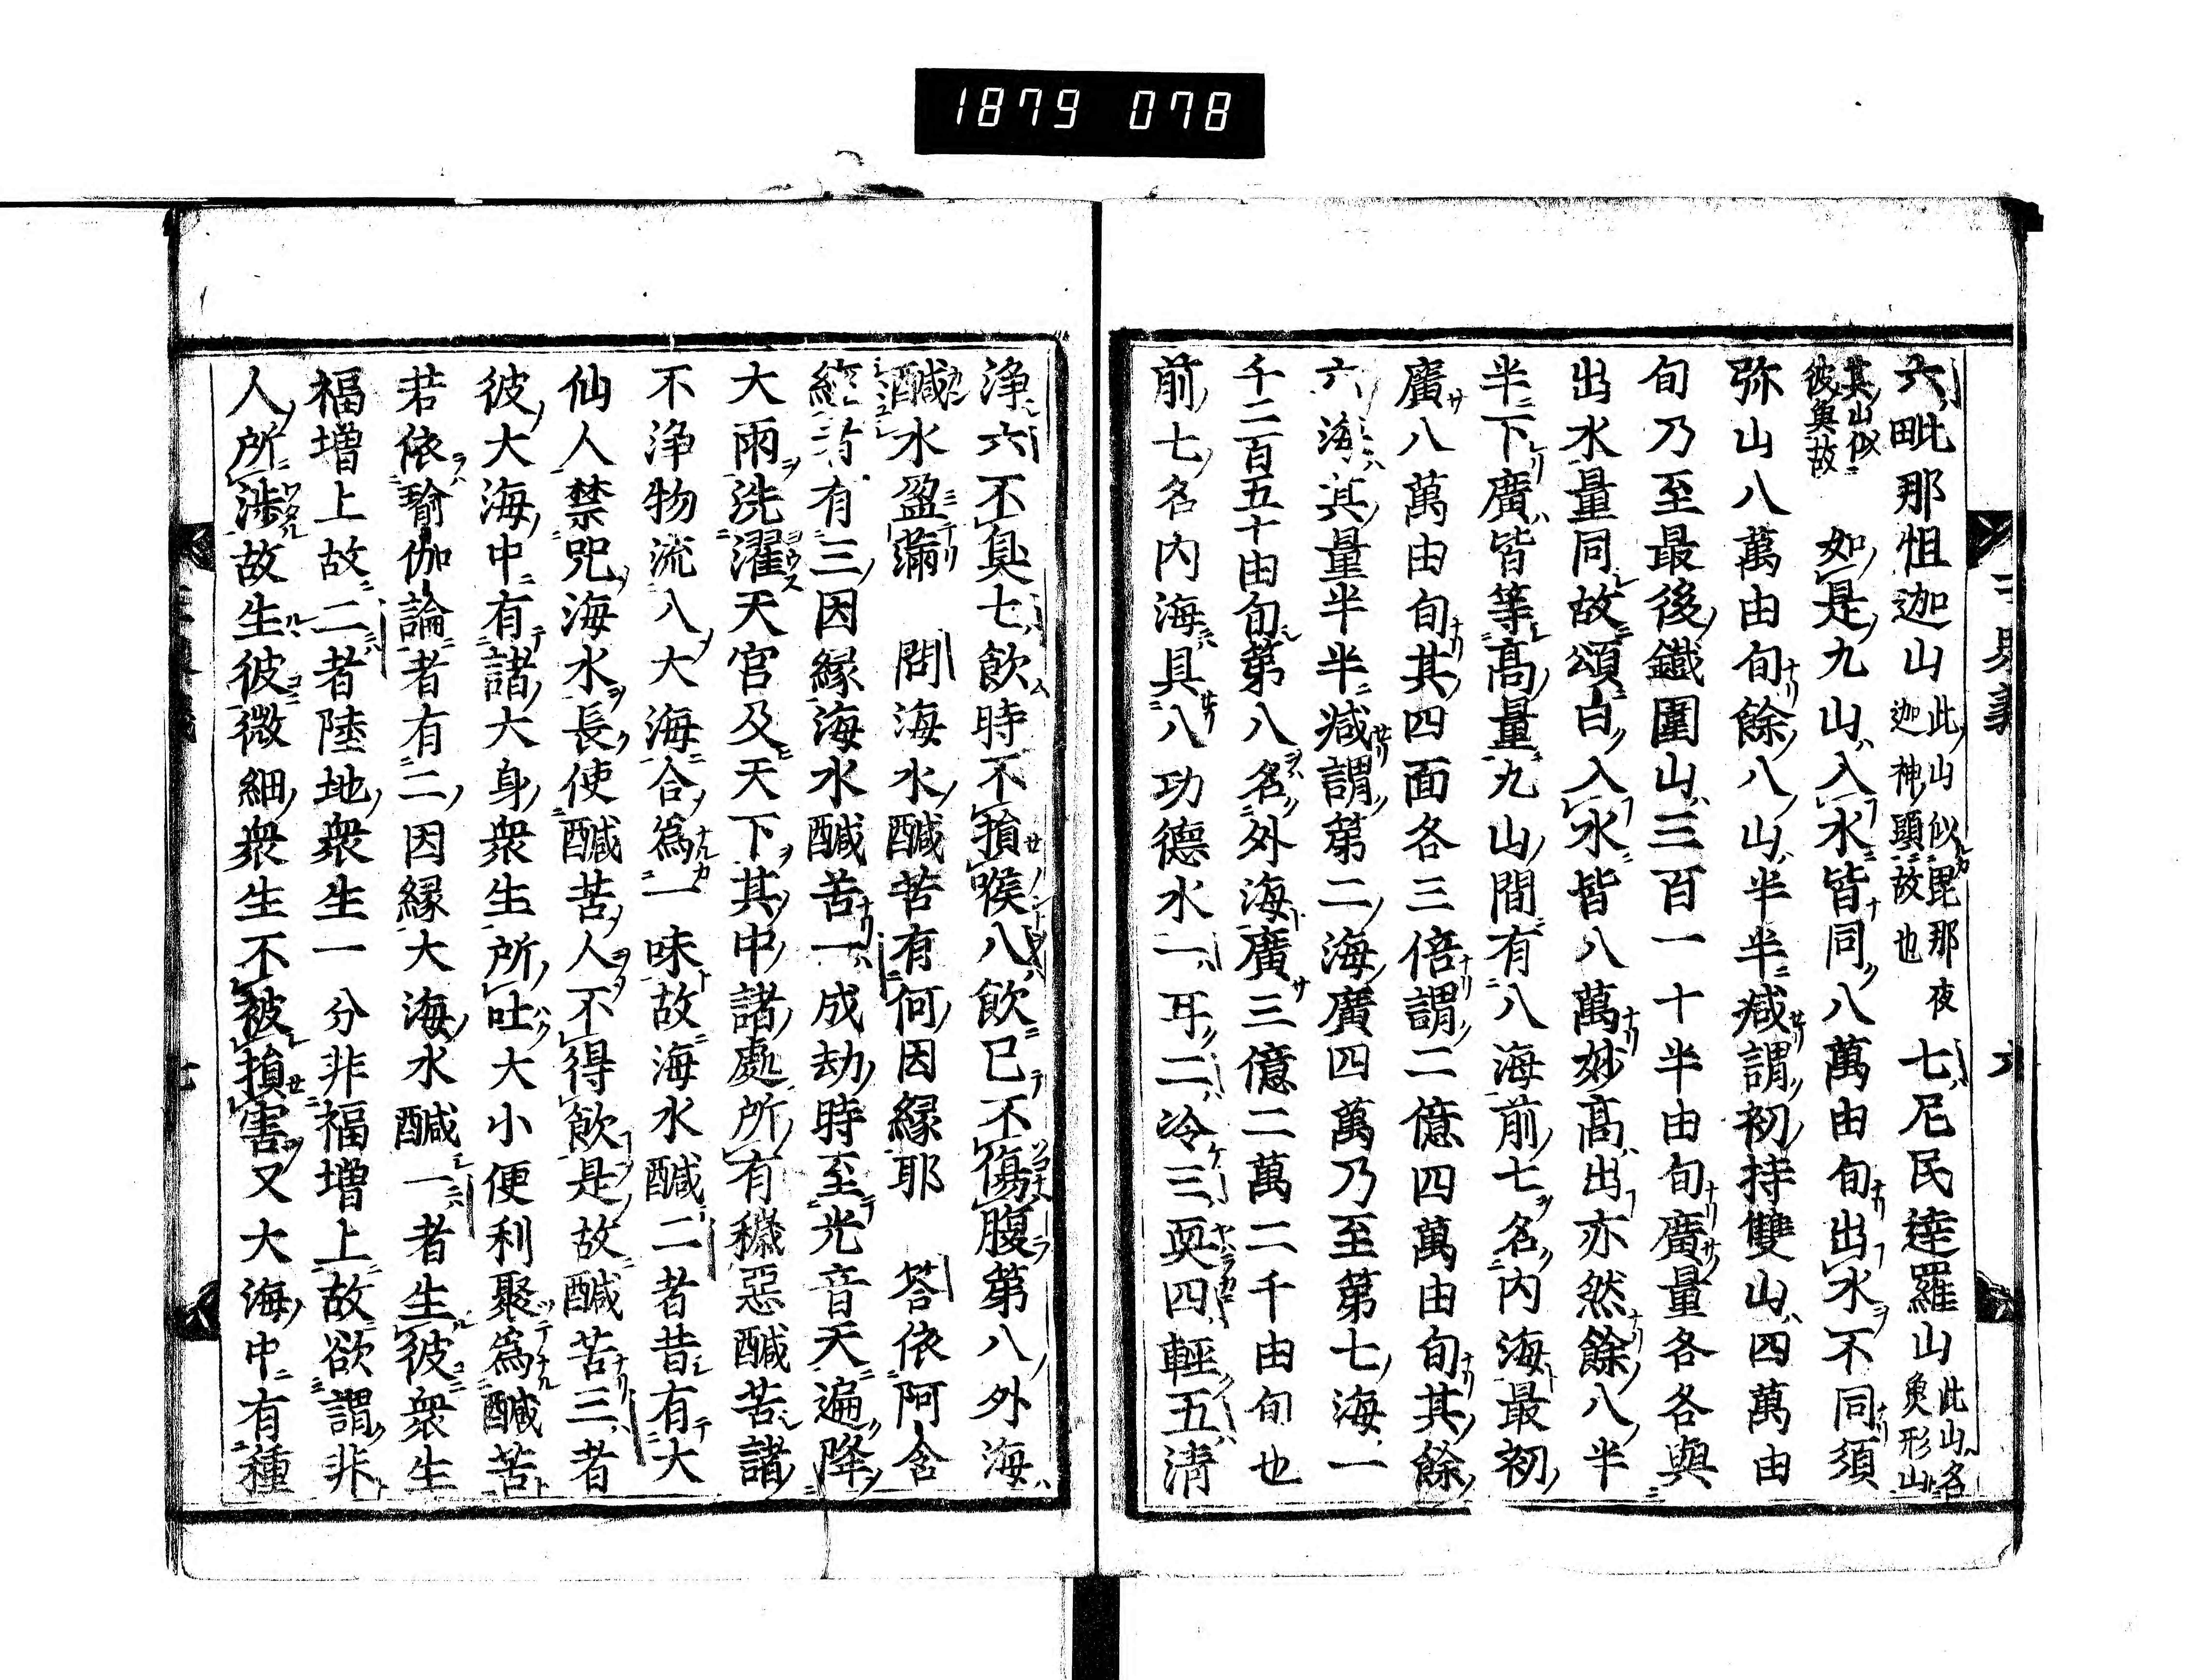 1879 078
六毗那怛迦山此山似毘那夜迦神頭故也七尼民達羅山此山名魚形山
其山似彼魚故 如是九山入水皆同八萬由旬出水不同須
弥山八萬由旬餘八山半半减謂初持雙山四萬由
旬乃至最後鐵圍山三百一十半由旬廣量各各與
出水量同故頌曰入水皆八萬妙高出亦然餘八半
半下廣皆等高量九山間有八海前七名内海最初
廣八萬由旬其四面各三倍謂二億四萬由旬其餘
六海其量半半减謂第二海廣四萬乃至第七海一
千二百五十由旬第八名外海廣三億二萬二千由旬也
前七名内海具八功德水一耳二冷三耎四輕五清
浄六不臭七飲時不損喉八飲已不傷腹第八外海
醎水盈滿 問海水醎苦有何因縁耶 答依阿含
經者有三因縁海水醎苦一成劫時至光音天遍降
大雨洗濯天宮及天下其中諸處所有穢惡醎苦諸
不浄物流入大海合為一味故海水醎二者昔有大
仙人禁咒海水長使醎苦人不得飲是故醎苦三者
彼大海中有諸大身衆生所吐大小便利聚為醎苦
若依瑜伽論者有二因縁大海水醎一者生彼衆生
福增上故二者陸地衆生一分非福增上故欲謂非
人所渉故生彼微細衆生不被損害又大海中有種